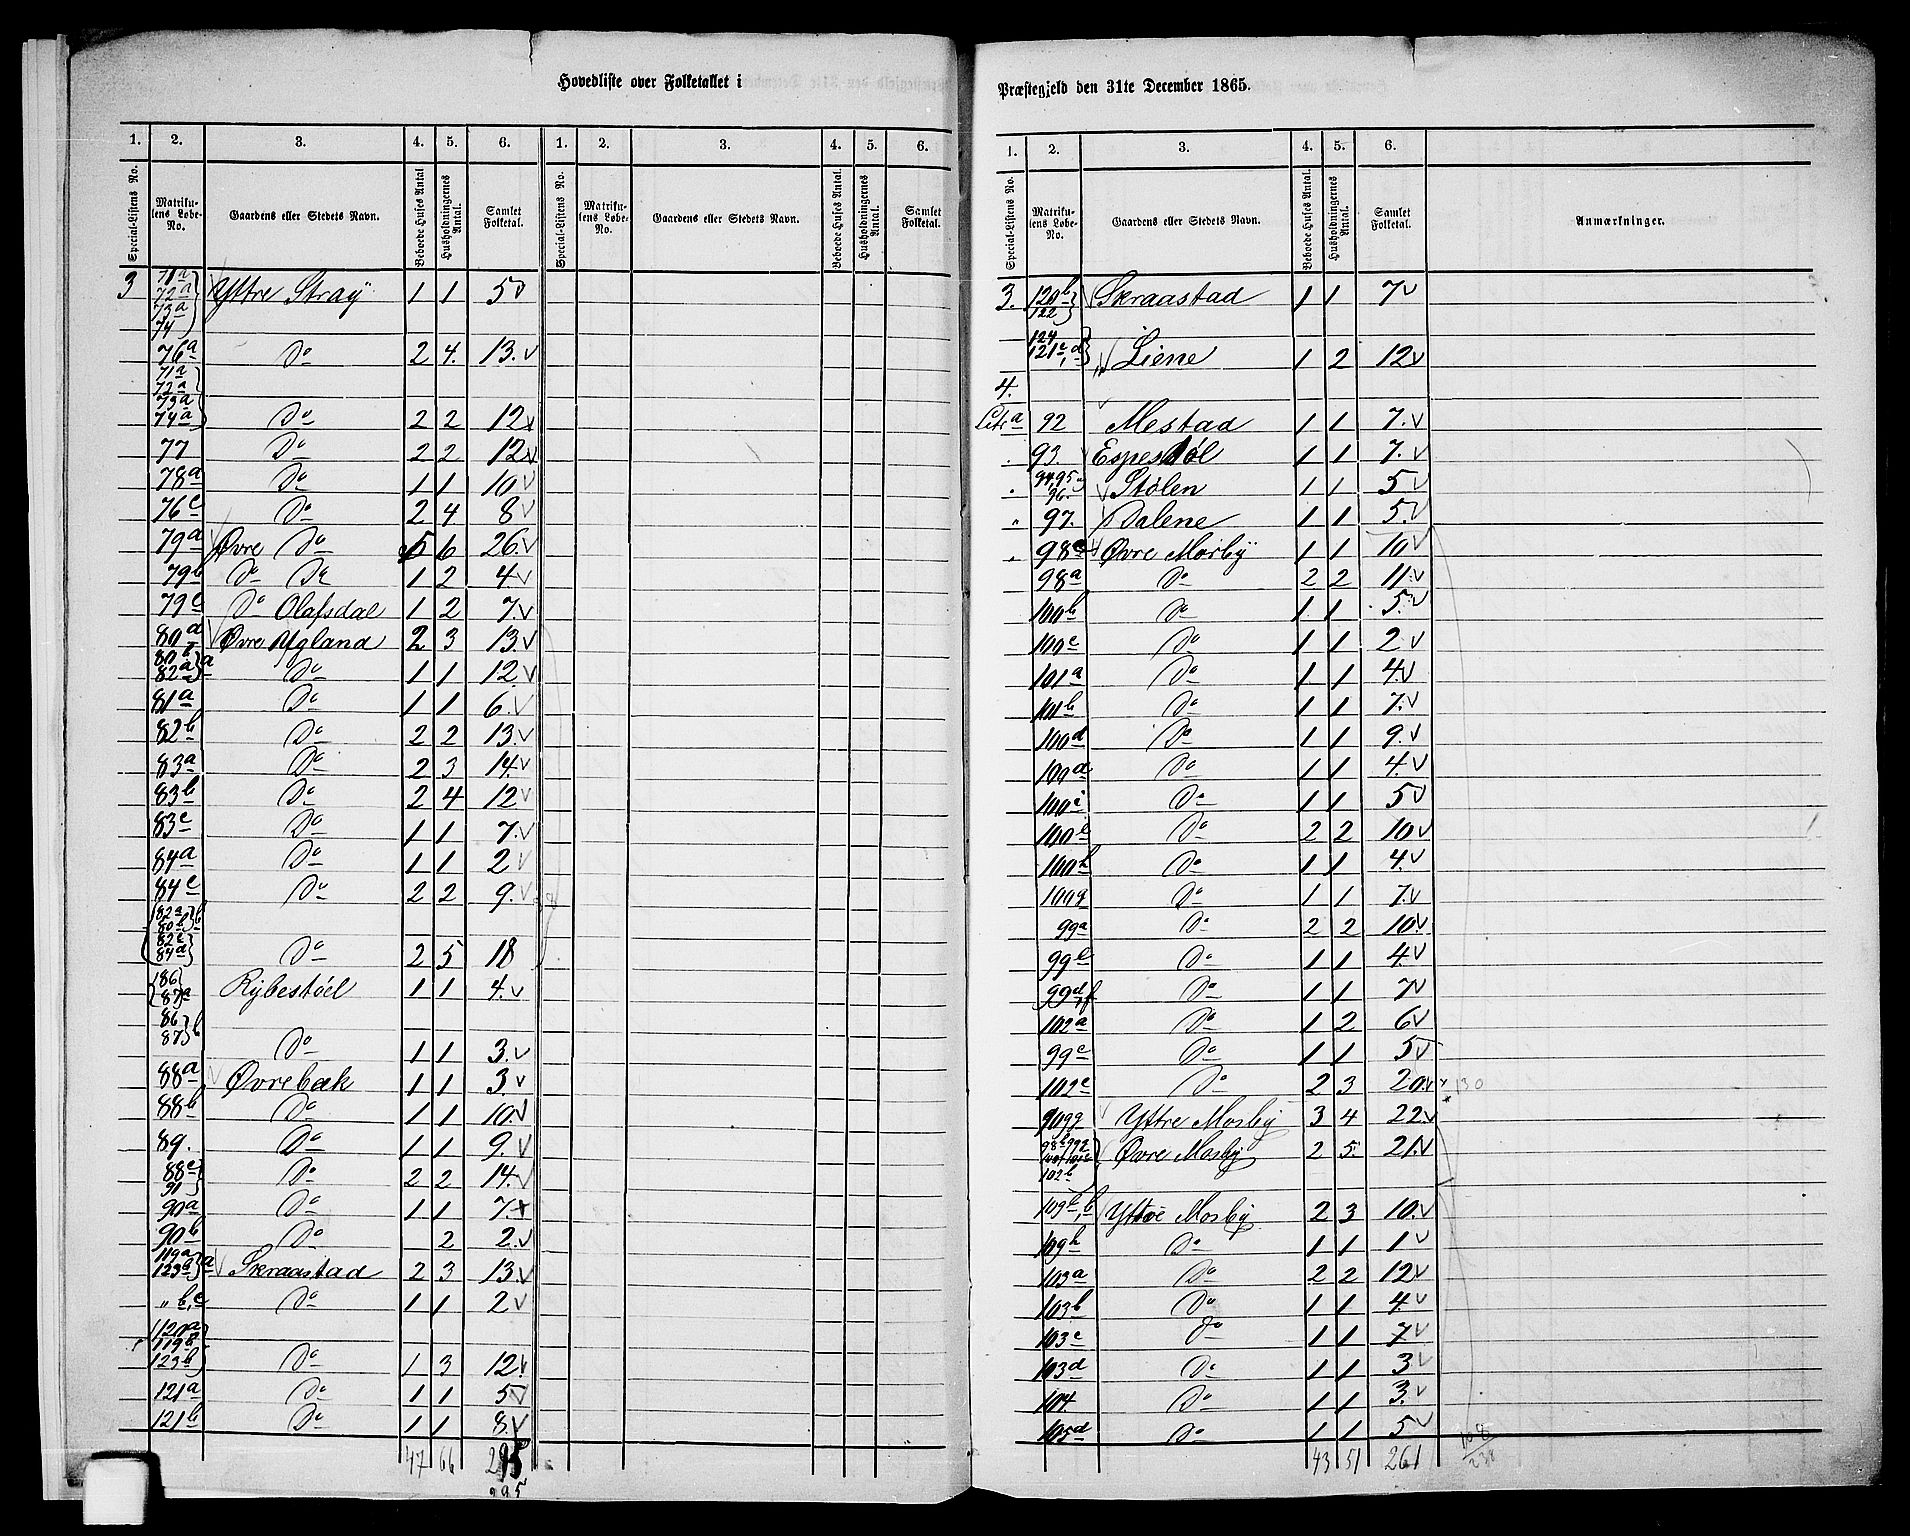 Hovedliste over Folketallet i
1. 2. 3. 4. 5. 6. 1. 2. 3. 4. 5. 6.
Special-Listens No. Matrikulens Løbe-No. Gaardens eller Stedets Navn. Beboede Huses Antal Husholdningernes Antal. Samlet Folketal. Special-Listens No. Matrikulens Løbe-No. Gaardens eller Stedets Navn. Beboede Huses Antal. Husholdningernes Antal. Samlet Folketal.
3 71a 72a 73a 74 Yttre Stray 1 1 5
76a Do 2 4. 13.
71a 72a 73a 74a Do 2 2 12
77 Do 2 2 12
78a Do 1 1 10
76c Do 2 4 8
79a Øvre Do 5 6 26.
79b Do Do 1 2 4
79c Do Olafsdal 1 2 7.
80a Øvre Ugland 2 3 13.
82a a Do 1 1 12.
81a Do 1 1 6.
82b Do 2 2 13.
83a Do 2 3 14.
83b Do 2 4 12
83c Do 1 1 7.
84a Do 1 1 2
84c Do 2 2 9.
82a 80b 82c 84d b Do 2 5 18
86 87a Rybestøel 1 1 4.
86 87 b Do 1 1 3.
88a Øvrebæk 1 1 3.
88b Do 1 1 10.
89. Do 1 1 9.
88c 91 Do 2 2 14.
90a Do 1 1 7.
90b Do 2 2.
119a 123a a Skraastad 2 3 13
" b, c Do 1 1 2
120a 119b 123b Do 1 3 12.
121a Do 1 1 5
121b Do 1 1 8.
47 66 295
295
Præstegjeld den 31te December 1865.
1. 2. 3. 4. 5. 6.
Special-Listens No. Matrikulens Løbe-No. Gaardens eller Stedets Navn. Beboede Huses Antal. Husholdningernes Antal. Samlet Folketal. Anmærkninger.
3. 120b 122 Skraastad 1 1 7
124 121c, d Liene 1 2 12
4.
Litr a 92 Mestad 1 1 7.
93. Espestøl 1 1 7.
94, 95 96. Stølen 1 1 5
" 97. Dalene 1 1 5.
98c Øvre Mosby 1 1 10
98a Do 2 2 11.
100b Do 1. 1 5.
100c Do 1 1 2
101a Do 1 1 4.
101b Do 1 1 7.
100d Do 1 1 9.
100d Do 1 1 4.
100i Do 1 1 5
100e Do 2 2 10
100h Do 1 1 4.
100g Do 1 1 7.
99a Do 2 2 10.
99b Do 1 1 4.
99d, f Do 1 1 7
102a Do 1 2 6
99c Do 1 1 5
102c Do 2 3 20. 130
109g Yttre Mosby 3 4 22.
102b Øvre Mosby 2 5. 21.
109b, b Yttre Mosby 2 3 10.
109h Do 1 1 1
103a Do 2 2 12
103b Do 1 1 4.
103c Do 1 1 7
103d Do 1 1 3
104. Do 1 1 3.
105d Do 1 1 5
43 51 261 108 238